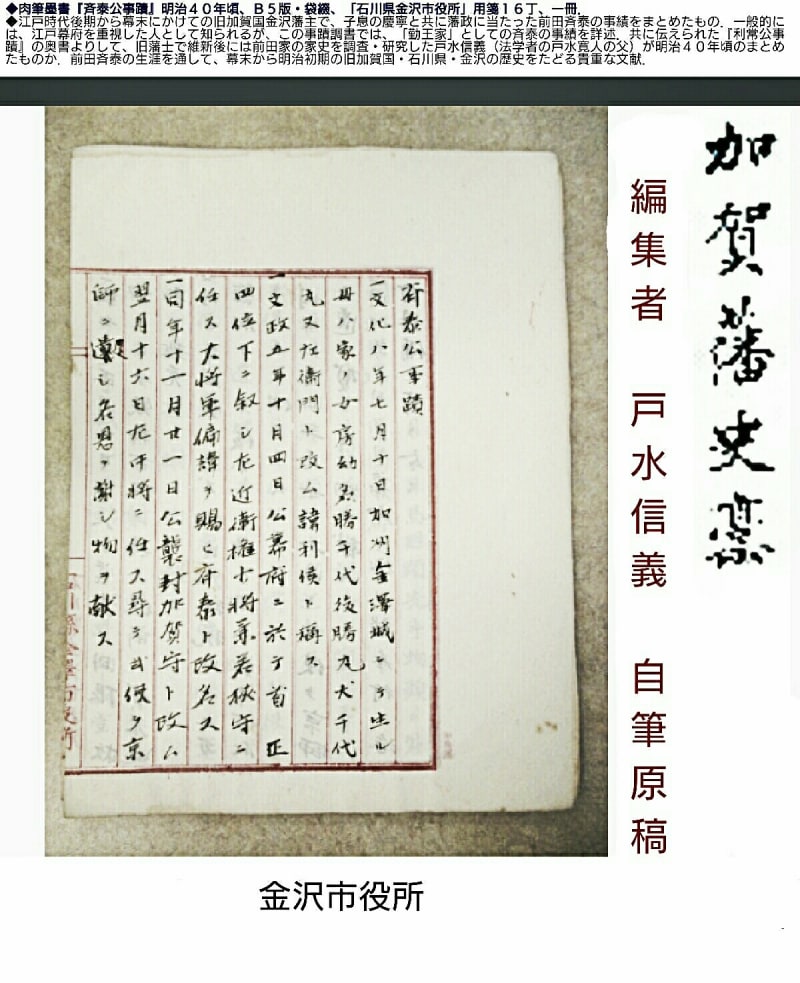 ◆肉筆墨書『斉泰公事蹟』明治４０年頃、Ｂ５版・袋綴、「石川県金沢市役所」用箋１６丁、一冊．
◆江戸時代後期から幕末にかけての旧加賀国金沢藩主で、子息の慶寧と共に藩政に当たった前田斉泰の事績をまとめたもの．一般的に
は、江戸幕府を重視した人として知られるが、この事蹟調書では、「勤王家」としての斉泰の事績を詳述．共に伝えられた『利常公事
蹟』の奥書よりして、旧藩士で維新後には前田家の家史を調査・研究した戸水信義（法学者の戸水寛人の父）が明治４０年頃のまとめ
たものか．前田斉泰の生涯を通して、幕末から明治初期の旧加賀国・石川県・金沢の歴史をたどる貴重な文献．
加賀藩史稿
編集者　戸水信義　自筆原稿
斉泰公事蹟
一文化八年七月十日加州金澤城ニ於テ生ル
母ハ家ノ女房幼名勝千代後勝丸犬千代
丸又左衛門ト改ム諱利侯ト稱ス
一文政五年十月四日公幕府ニ於テ首正
四位下ニ叙シ左近衛権少将兼若狭守ニ
任ス大将軍偏諱ヲ賜ヒ斉泰ト改名ス
一同年十一月廿一日公襲封加賀守ト改ム
翌月十六日左中将ニ任ス尋テ使ヲ京
師ニ遣シ名恩ヲ謝シ物ヲ献ス
石川縣金澤市役所
金沢市役所